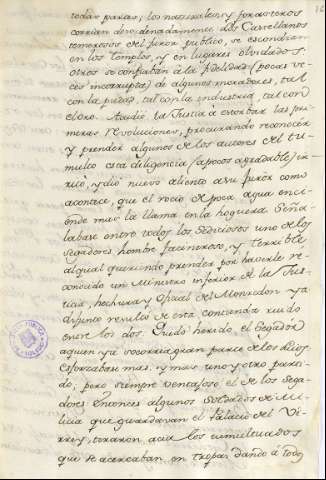 todas partes; los naturales y forasteros
corrian desordenadamente. Los Castellanos
temerosos del furor publico, se escondian
en los templos, y en lugares olvidados.
otros se confiaban á la fidelidad (pocas ve-
ces incorrupta) de algunos moradores, tal
con la piedad, tal con la industria, tal con
el oro. Acudió la Justicia á estorbar las pri-
meras revoluciones, procurando reconocer
y prender algunos de los autores del tu-
multo esta diligencia (a pocos agradable) ir-
ritó, y dió nuevo aliento a su furor como
acontece, que el rocio de poca agua enci-
ende mas la llama en la hoguera. Seña-
labase entre todos los sediciosos uno de los
segadores, hombre facineroso, y terrible
al qual queriendo prender por haverle re-
conocido un Ministro inferior de la Jus-
ticia, hechura y oficial del Monredon ya
dicho resultó de esta contienda ruido
entre los dos. Quedó herido el segador
a quien ya socorria gran parte de los suios.
Esforzabase mas, y mas uno y otro parti-
do, pero siempre ventajoso el de los sega-
dores. Entonces algunos soldados de Mi-
licia que guardavan el Palacio del Vi-
rrey, tiraron acia los tumultuados
que se acercaban en tropas dando á todo